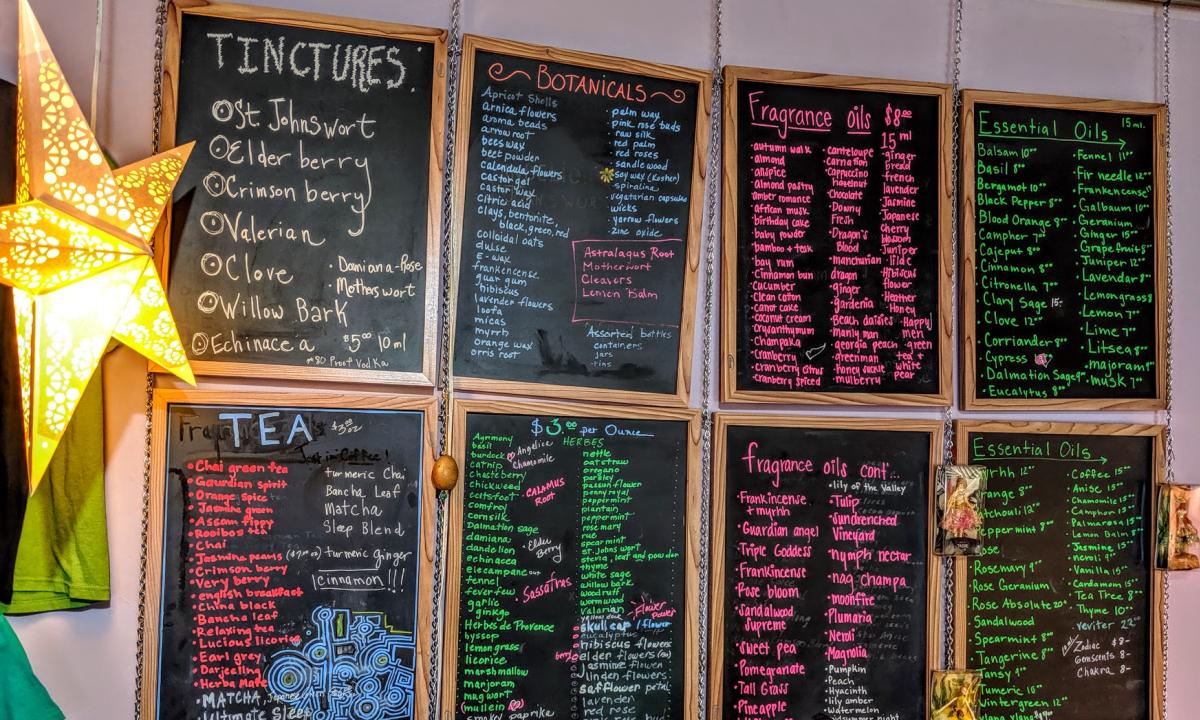 TINCTURES:
St Johnswort
Elder berry
Crimson berry
Valerian
Clove
Willow Bark
Echinacea
• Damiana-Rose
• Motherswort
$5.00 10 ml
*80 Proof Vodka
BOTANICALS
Apricot Shells
arnica flowers
aroma beads
arrow root
bees wax
beet powder
calendula flowers
castor gel
castor wax
citric acid
clays, bentonite,
black, green, red
colloidal oats
dulse
E-wax
frankencense
guar gum
hibiscus
lavender flowers
loofa
micas
myrrh
orange wax
orris root
• palm wax
• pink rose buds
• raw silk
• red palm
• red roses
• sandlewood
soy wax (Kosher)
• spirulina
• vegetarian capsules
• wicks
• yarrow flowers
• zinc oxide
Astralagus Root
Motherwort
Cleavers
Lemon Balm
Assorted bottles
containers
jars
tins
Fragrance oils $8.00
15 ml
• autumn walk
• almond
• allspice
• almond pastry
• amber romance
• african musk
• birthday cake
• baby powder
• bamboo + teak
• bay rum
• Cinnamon bun
• Cucumber
• Clean cotton
• Carrot cake
• coconut cream
• Crysanthymum
• champaka
• Cranberry
• cranberry citrus
• cranberry spiced
• canteloupe
• carnation
• Cappuccino
hazelnut
• Chocolate
• Downy
Fresh
• Dragon's
Blood
• manchurian
dragon
• ginger
• gardenia
• Beach daisies
• Manly man
• georgia peach
• greenman
• Honey suckle
• mulberry
• ginger
bread
• french
lavender
• Jasmine
• Japanese
cherry
blossom
• Juniper
• lilac
• Hibiscus
flower
• Heather
• Honey
• Happy
men
• green
tea +
white
pear
Essential Oils 15 ml.
Balsam 10⁰⁰
Basil 8⁰⁰
Bergamot 10⁰⁰
Black Pepper 8⁰⁰
Blood Orange 8⁰⁰
Campher 7⁰⁰
Cajeput 8⁰⁰
Cinnamon 8⁰⁰
Citronella 7⁰⁰
Clary Sage 15-
Clove 12⁰⁰
Corriander 8⁰⁰
Cypress
Dalmation Sage 9⁰⁰
Eucalyptus 8⁰⁰
• Fennel 11⁰⁰
• Fir needle 12⁰⁰
• Frankencense
• Galbaum 10⁰⁰
• Geranium
• Ginger 15⁰⁰
• Grapefruit 8⁰⁰
• Juniper 12⁰⁰
• Lavendar 8⁰⁰
• Lemongrass 8
• Lemon 7⁰⁰
• Lime 7⁰⁰
• Litsea 8⁰⁰
• majoram
• musk 7⁰⁰
TEA $3.00/oz
Just in Coffee!
• Chai green tea
• Gaurdian spirit
• Orange spice
• Jasmine green
• Assam tippy
• Rooibos tea
• Chai
• Jasmine pearls
• Crimson berry
• Very berry
• english breakfast
• China black
• Bancha leaf
• Relaxing tea
• Lucious licorice
• Earl grey
• Darjeeling
• Herba Mate
• MATCHA
• Ultimate Sleep
turmeric Chai
Bancha Leaf
Matcha
Sleep Blend
turmeric ginger
cinnamon!!!
$3.00 per Ounce
HERBES
Agrmony
basil
burdock
catnip
chaste berry
chickweed
coltsfoot
comfrey
cornsilk
Dalmation sage
damiana
dandelion
echinacea
elecampane
fennel
feverfew
garlic
ginkgo
Herbes de Provence
hyssop
lemon grass
licorice
marshmallow
marjoram
mugwort
mullein
smokey paprika
Angelica
Chamomile
CALAMUS
ROOT
Elder
Berry
Sassafras
nettle
oatstraw
oregano
parsley
passion flower
penny royal
peppermint
plantain
peppermint
rosemary
rue
spearmint
st. johns wort
stevia, leaf and powder
thyme
white sage
willow bark
woodruff
wormwood
valerian
yellow dock
skull cap / flower
eucalyptus
hibiscus flowers
elder flowers
jasmine flowers
linden flowers
safflower petals
lavender
red rose
Flower
Power
fragrance oils cont.
• Frankincense
+ myrrh
• Guardian angel
• Triple Goddess
• Frankincense
• Rose bloom
• Sandalwood
Supreme
• sweet pea
• Pomegranate
• Tall Grass
• Pineapple
• lily of the Valley
• Tulip
• Sundrenched
Vineyard
• nymph nectar
• nag champa
• moonfire
• Plumaria
• Neroi
• Magnolia
• Pumpkin
• Peach
• Hyacinth
• lily amber
• Watermelon
Essential Oils
12⁰⁰
8⁰⁰
12⁰⁰
peppermint 8⁰⁰
Rose
Rosemary 9⁰⁰
Rose Geranium
Rose Absolute 20⁰⁰
Sandalwood
Spearmint 8⁰⁰
Tangerine 8⁰⁰
Tansy 9⁰⁰
Tumeric 10⁰⁰
Wintergreen 8⁰⁰
• Coffee 15⁰⁰
• Anise 15⁰⁰
• Chamomile 15⁰⁰
• Camphor 15⁰⁰
• Palmarosa 15⁰⁰
• Lemon Balm 8⁰⁰
• Jasmine 15⁰⁰
• neroli 9⁰⁰
• Vanilla 15⁰⁰
• Cardamom 15⁰⁰
• Tea Tree 8⁰⁰
• Thyme 10⁰⁰
• Vetiver 22⁰⁰
Zodiac $8-
Gemscents 8-
Chakra 8-